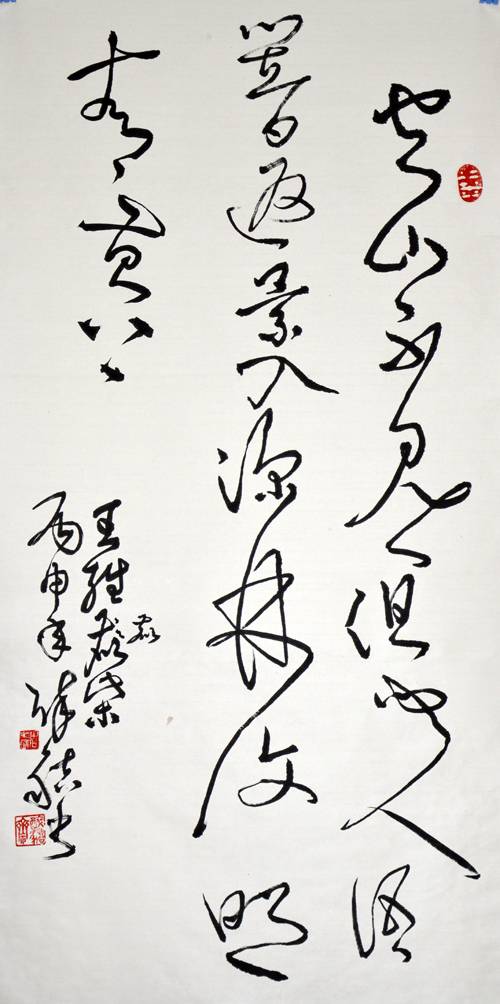 空山不見人但聞人語
響返景入深林復照
青苔上
王維鹿柴
丙申年
書